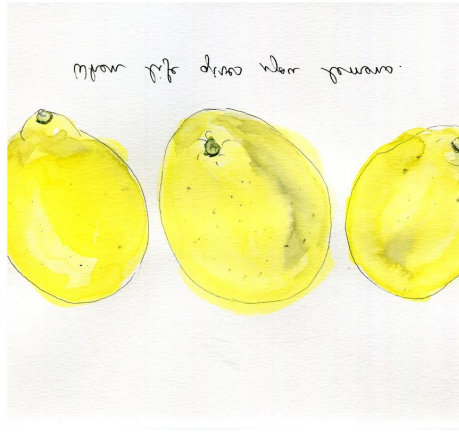 When life gives you lemons.